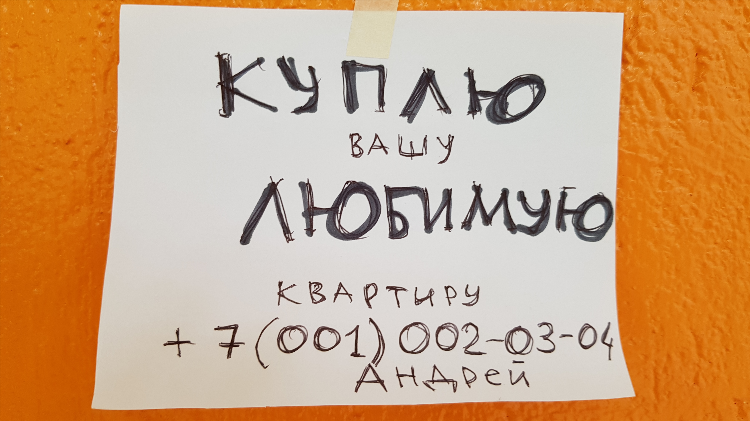 КУПЛЮ
ВАШУ
ЛЮБИМУЮ
КВАРТИРУ
+7(001)002-03-04
АНДРЕЙ